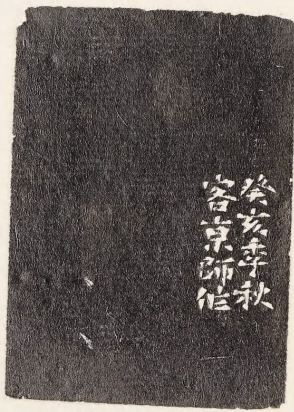 癸亥季秋
客京师作